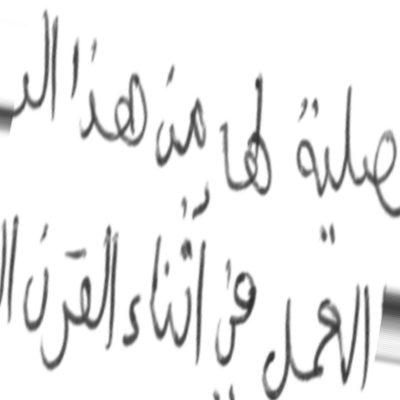 صلية لها من هذا الد
العمل في أثناء القرن ال